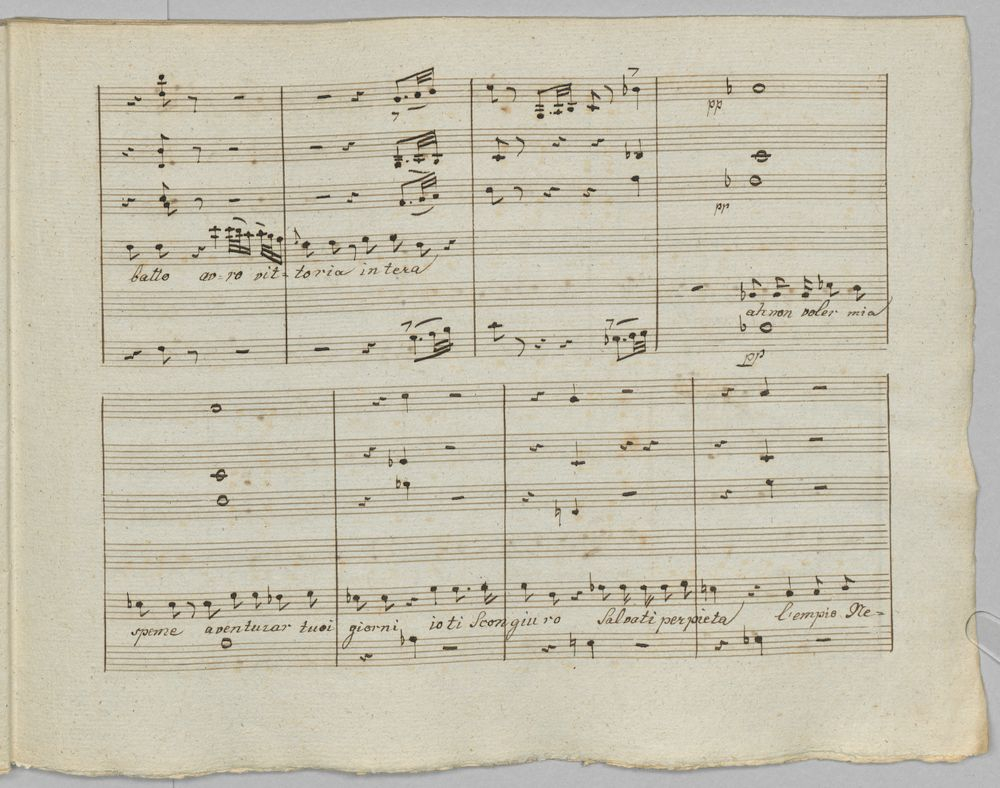 pp
pp
batto avro vit-toria intera
ah non voler mia
pp
speme aventurar tuoi giorni io ti Scongiuro Salvati per pieta l'empio Ne=